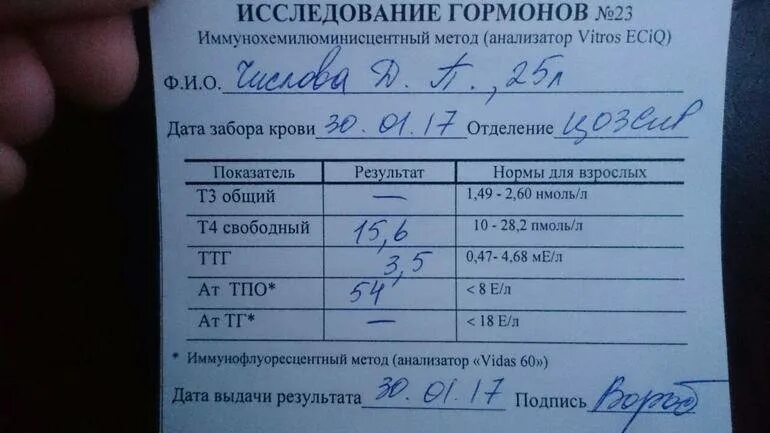 ИССЛЕДОВАНИЕ ГОРМОНОВ №23
Иммунохемилюминисцентный метод (анализатор Vitros ECiQ)
Ф.И.О. Числова Д. П., 25л
Дата забора крови 30.01.17 Отделение ЦОЗСиР
Показатель Результат Нормы для взрослых
Т3 общий — 1,49 - 2,60 нмоль/л
Т4 свободный 15,6 10 - 28,2 пмоль/л
ТТГ 3,5 0,47- 4,68 мЕ/л
Ат ТПО* 54 < 8 Е/л
Ат ТГ* — < 18 Е/л
* Иммунофлуоресцентный метод (анализатор «Vidas 60»)
Дата выдачи результата 30.01.17 Подпись Вороб